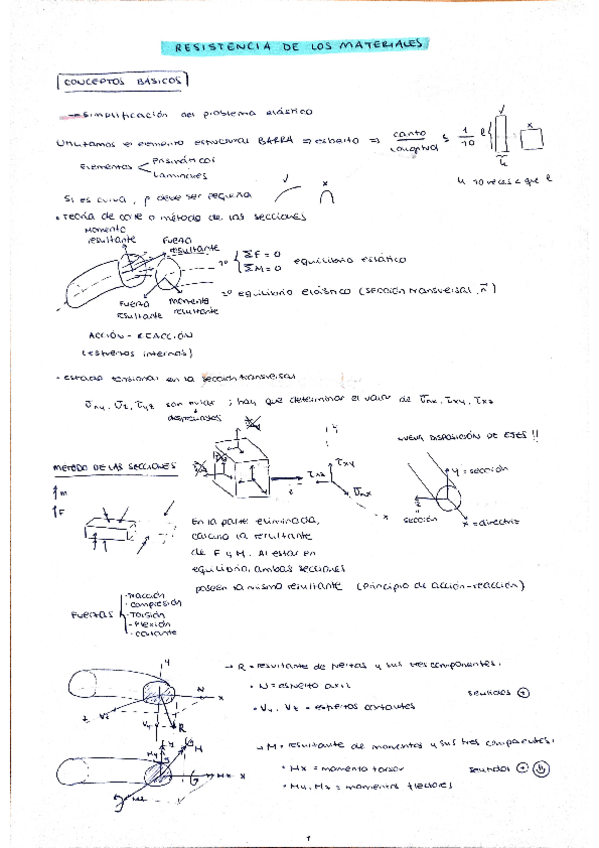 RESISTENCIA DE LOS MATERIALES
CONCEPTOS BÁSICOS
→ simplificación del problema elástico
Utilizamos el elemento estructural BARRA ⇒ esbelto ⇒ canto / longitud ≤ 1/10
Elementos < Prismáticos
Laminares
10 veces < que l
Si es curva, ρ debe ser pequeña
• teoría de corte o método de las secciones
Momento resultante
Fuerza resultante
1º { ΣF = 0
ΣM = 0 equilibrio estático
2º equilibrio elástico (sección transversal, n)
Fuerza resultante
Momento resultante
ACCIÓN - REACCIÓN
(esfuerzos internos)
• estado tensional en la sección transversal
son nulas ; hay que determinar el valor de σnx, τxy, τxz
despreciables
NUEVA DISPOSICIÓN DE EJES !!
MÉTODO DE LAS SECCIONES
τxy
τxz
σnx
y = sección
sección
x = directriz
↑ M
↑ F
En la parte eliminada,
calculo la resultante
de F y M. Al estar en
equilibrio, ambas secciones
poseen la misma resultante (principio de acción-reacción)
FUERZAS
- Tracción
- compresión
- Torsión
- Flexión
- cortante
→ R = resultante de fuerzas y sus tres componentes.
• N = esfuerzo axil
sentidos +
• Vy, Vz = esfuerzos cortantes
y
N
x
z
Vz
Vy
R
→ M = resultante de momentos y sus tres componentes.
• Mx = momento torsor
sentidos +
• My, Mz = momentos flectores
My
M
Mx
x
Mz
1